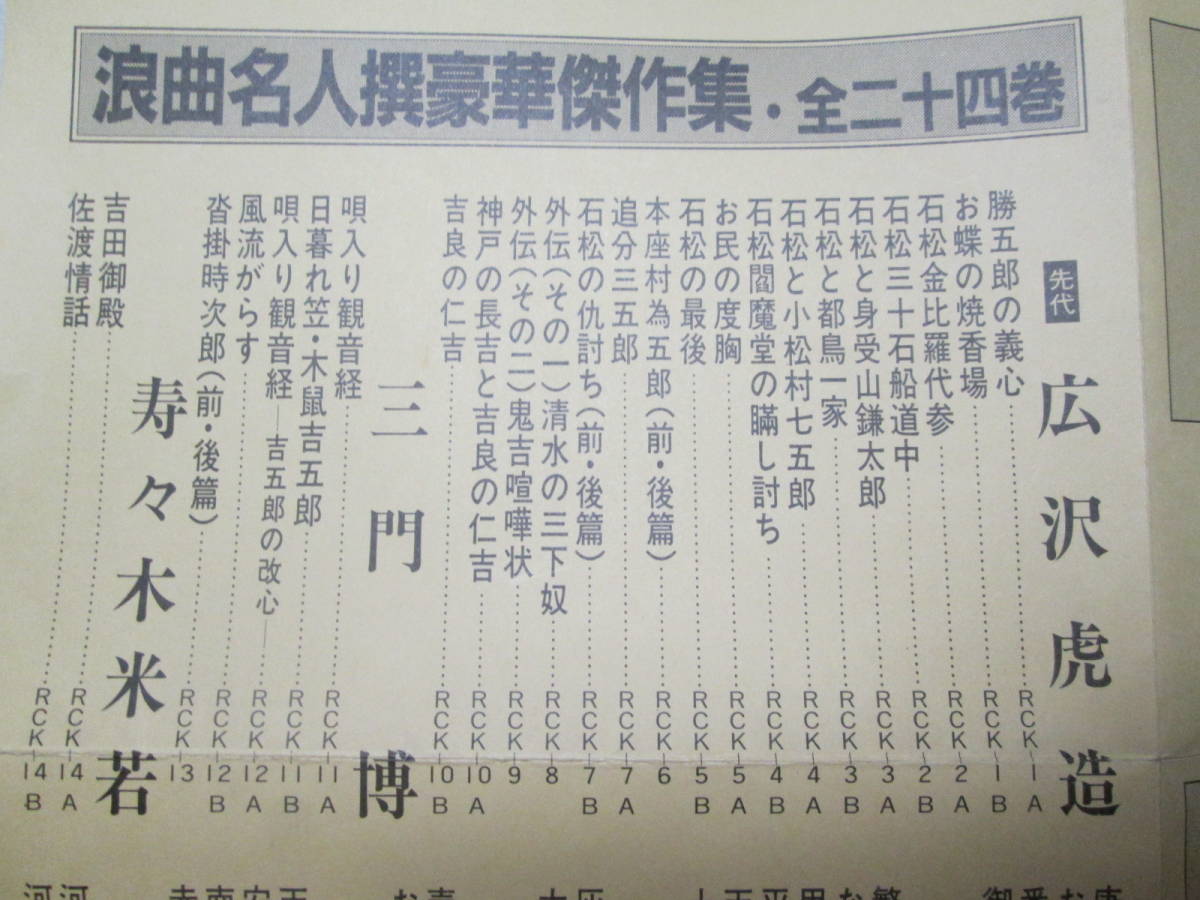 浪曲名人撰豪華傑作集・全二十四巻
先代 広沢虎造
勝五郎の義心……RCK―1A
お蝶の焼香場……RCK―1B
石松金比羅代参……RCK―2A
石松三十石船道中……RCK―2B
石松と身受山鎌太郎……RCK―3A
石松と都鳥一家……RCK―3B
石松と小松村七五郎……RCK―4A
石松閻魔堂の瞞し討ち……RCK―4B
お民の度胸……RCK―5A
石松の最後……RCK―5B
本座村為五郎(前・後篇)……RCK―6
追分三五郎……RCK―7A
石松の仇討ち(前・後篇)……RCK―7B
外伝(その一)清水の三下奴……RCK―8
外伝(その二)鬼吉喧嘩状……RCK―9
神戸の長吉と吉良の仁吉……RCK―10A
吉良の仁吉……RCK―10B
三門博
唄入り観音経……RCK―11A
日暮れ笠・木鼠吉五郎……RCK―11B
唄入り観音経―吉五郎の改心―……RCK―12A
風流がらす……RCK―12B
沓掛時次郎(前・後篇)……RCK―13
寿々木米若
吉田御殿……RCK―14A
佐渡情話……RCK―14B